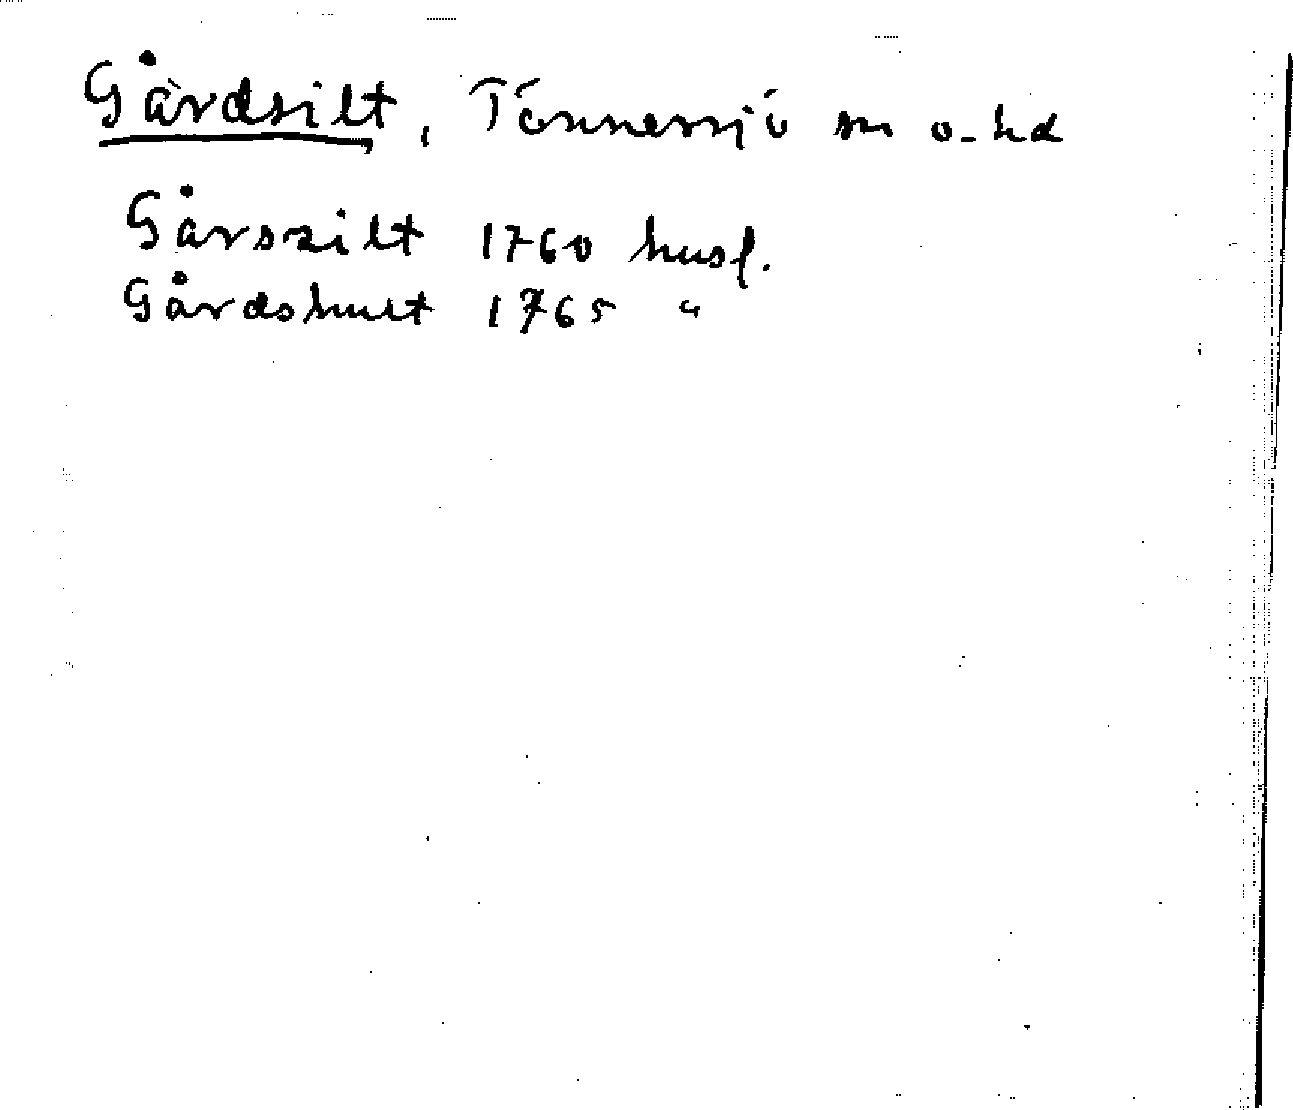 Gårdsilt, Tönnersjö sn o. hd
Gårssilt 1760 husf.
Gårdshult 1765 "